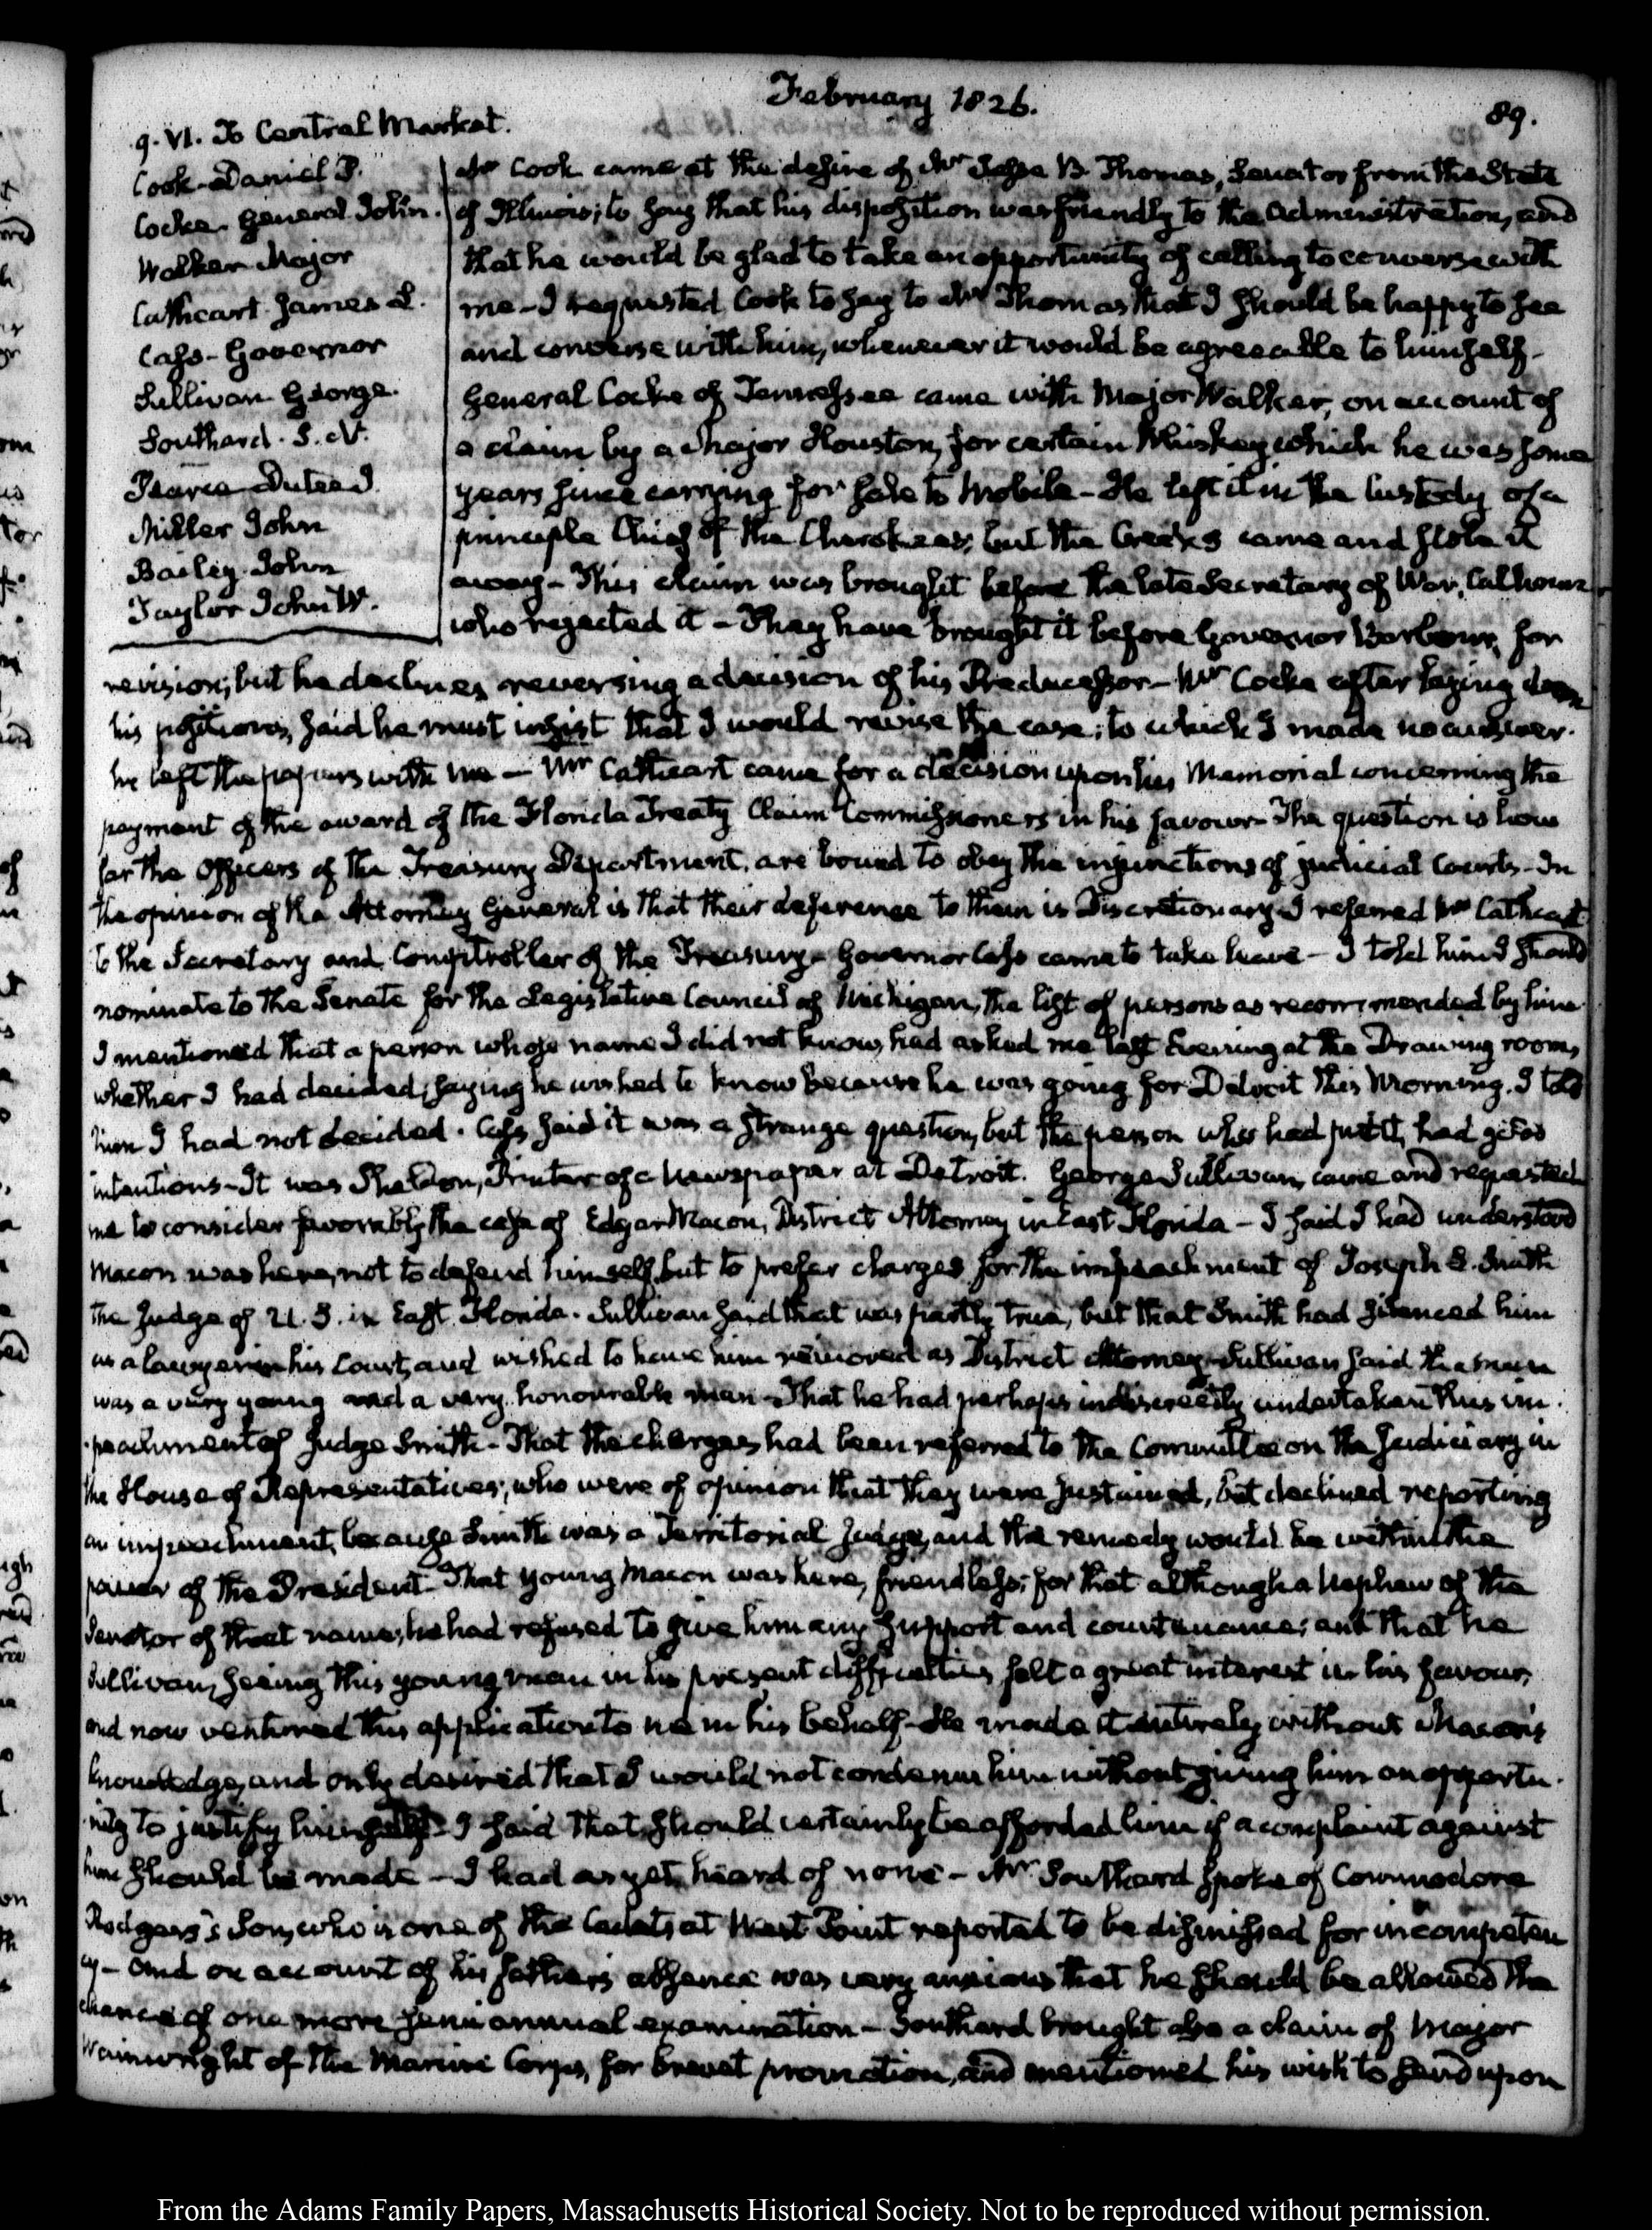 February 1826.
89.
9. VI. To Central Market.
Cook Daniel P.
Cocke General John.
Walker Major
Cathcart James L.
Cass Governor
Sullivan George.
Southard. S. N.
Pearce Dutee J.
Miller John
Bailey John
Taylor John W.
Mr Cook came at the desire of Mr Jesse B. Thomas, Senator from the State
of Illinois; to say that his disposition was friendly to the Administration, and
that he would be glad to take an opportunity of calling to converse with
me - I requested Cook to say to Mr Thomas that I should be happy to see
and converse with him, whenever it would be agreeable to himself -
General Cocke of Tennessee came with Major Walker, on account of
a claim by a Major Houston, for certain Whiskey which he was some
years since carrying for sale to Mobile - He left it in the custody of a
principle Chief of the Cherokees; but the Creeks came and stole it
away - This claim was brought before the late Secretary of War, Calhoun
who rejected it - They have brought it before Governor Barbour, for
revision; but he declines reversing a decision of his Predecessor - Mr Cocke after laying down
his positions, said he must insist that I would revise the case; to which I made no answer.
he left the papers with me - Mr Cathcart came for a decision upon his Memorial concerning the
payment of the award of the Florida Treaty Claim Commissioners in his favour - The question is how
far the Officers of the Treasury Department, are bound to obey the injunctions of judicial Courts - In
the opinion of the Attorney General is that their deference to them is Discretionary - I referred Mr Cathcart
to the Secretary and Comptroller of the Treasury - Governor Cass came to take leave - I told him I should
nominate to the Senate for the Legislative Council of Michigan, the list of persons as recommended by him
I mentioned that a person whose name I did not know, had asked me last Evening at the Drawing room,
whether I had decided; saying he wished to know because he was going for Detroit this Morning. I told
him I had not decided. Cass said it was a strange question, but the person who had put it, had good
intentions - It was Sheldon, Printer of a Newspaper at Detroit. George Sullivan, came and requested
me to consider favorably the case of Edgar Macon, District Attorney in East Florida - I said I had understood
Macon was here, not to defend himself, but to prefer charges for the impeachment of Joseph L. Smith
the Judge of U. S. in East Florida. Sullivan said that was partly true, but that Smith had silenced him
as a lawyer in his Court, and wished to have him removed as District Attorney - Sullivan said the man
was a very young and a very honourable man - That he had perhaps indiscreetly undertaken this im-
peachment of Judge Smith - That the charges had been referred to the Committee on the Judiciary in
the House of Representatives; who were of opinion that they were sustained, but declined reporting
an impeachment, because Smith was a Territorial Judge, and the remedy would be within the
power of the President - That young Macon was here, friendless; for that although a Nephew of the
Senator of that name, he had refused to give him any support and countenance; and that he
Sullivan, seeing this young man in his present difficulties felt a great interest in his favour,
and now ventured this application to me in his behalf - He made it entirely without Macon's
knowledge, and only desired that I would not condemn him without giving him an opportu-
nity to justify himself - I said that should certainly be afforded him if a complaint against
him should be made - I had as yet heard of none - Mr Southard spoke of Commodore
Rodgers's Son, who is one of the Cadets at West Point reported to be dismissed for incompeten
cy - and on account of his father's absence was very anxious that he should be allowed the
chance of one more semi annual examination - Southard brought also a claim of Major
Wainwright of the Marine Corps, for brevet promotion, and mentioned his wish to send upon
From the Adams Family Papers, Massachusetts Historical Society. Not to be reproduced without permission.